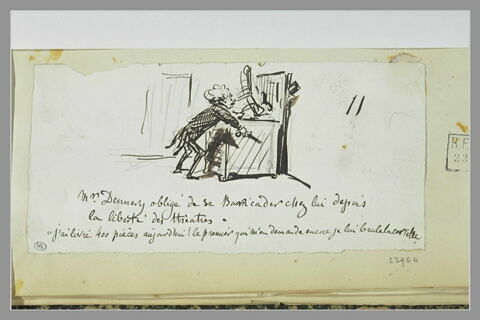 11
Mr. Dennery obligé de se Barricader chez lui depuis
la liberté des théatres.
"j'ai livré 400 pièces aujourd'hui! le premier qui m'en demande encore je lui brule la cervelle
R.F.
23
23964